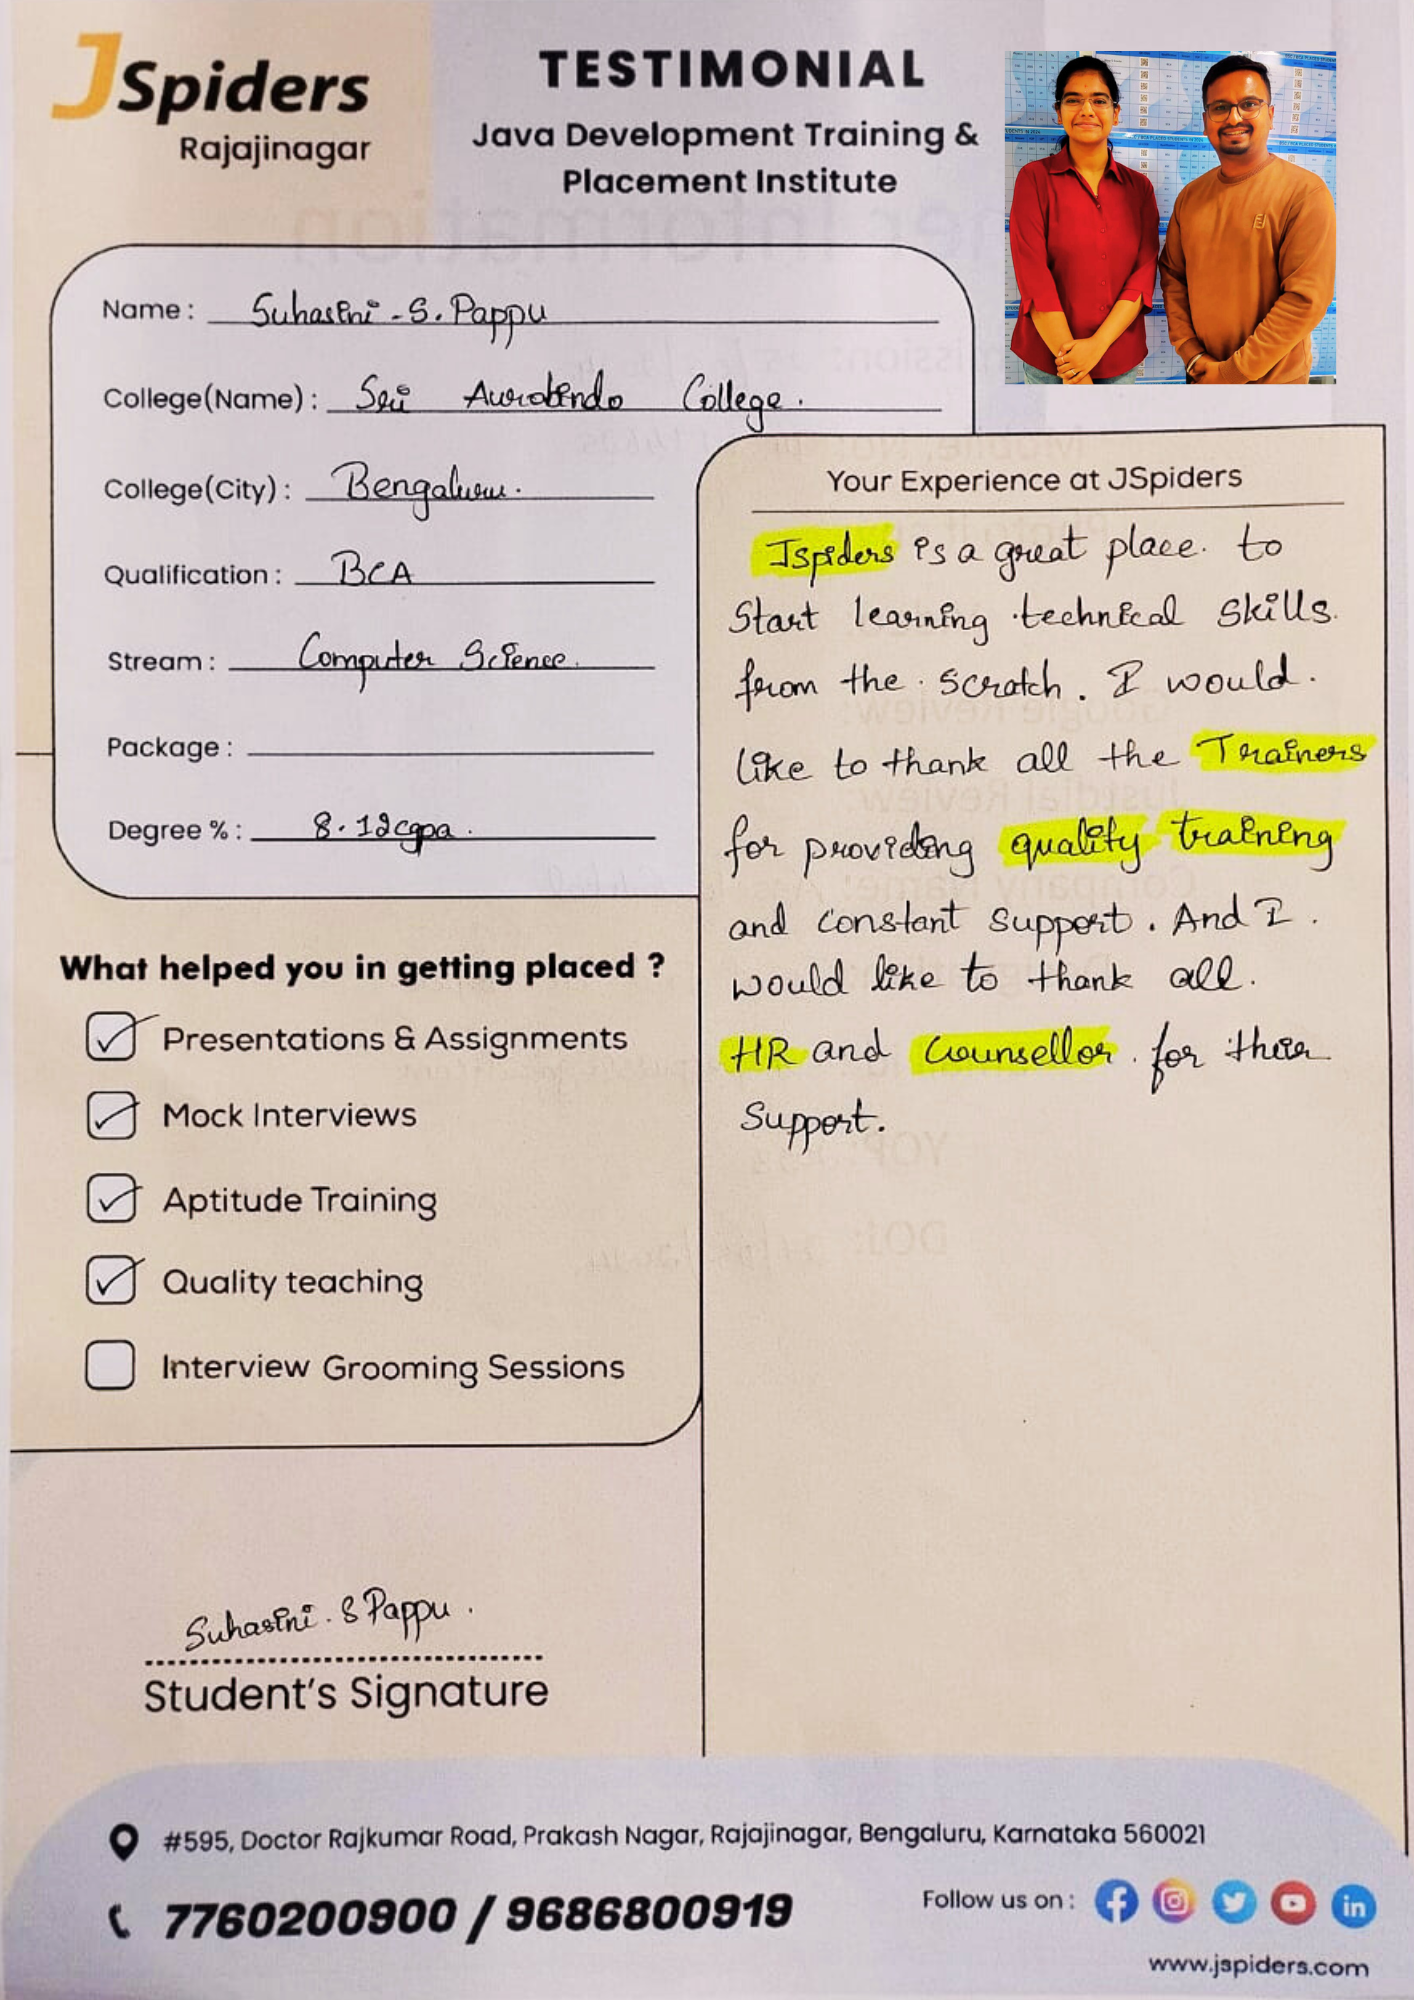 JSpiders
Rajajinagar
TESTIMONIAL
Java Development Training &
Placement Institute
Name : Suhasini - S. Pappu
College(Name) : Sri Aurobindo College.
College(City) : Bengaluru.
Qualification : BCA
Stream : Computer Science.
Package :
Degree % : 8.12cgpa.
What helped you in getting placed ?
Presentations & Assignments
Mock Interviews
Aptitude Training
Quality teaching
Interview Grooming Sessions
Suhasini. S Pappu.
Student's Signature
Your Experience at JSpiders
Jspiders is a great place. to
Start learning technical skills.
from the. scratch. I would.
like to thank all the Trainers
for providing quality training
and constant support. And I.
would like to thank all.
HR and Counsellor. for their
Support.
#595, Doctor Rajkumar Road, Prakash Nagar, Rajajinagar, Bengaluru, Karnataka 560021
7760200900 / 9686800919
Follow us on :
www.jspiders.com